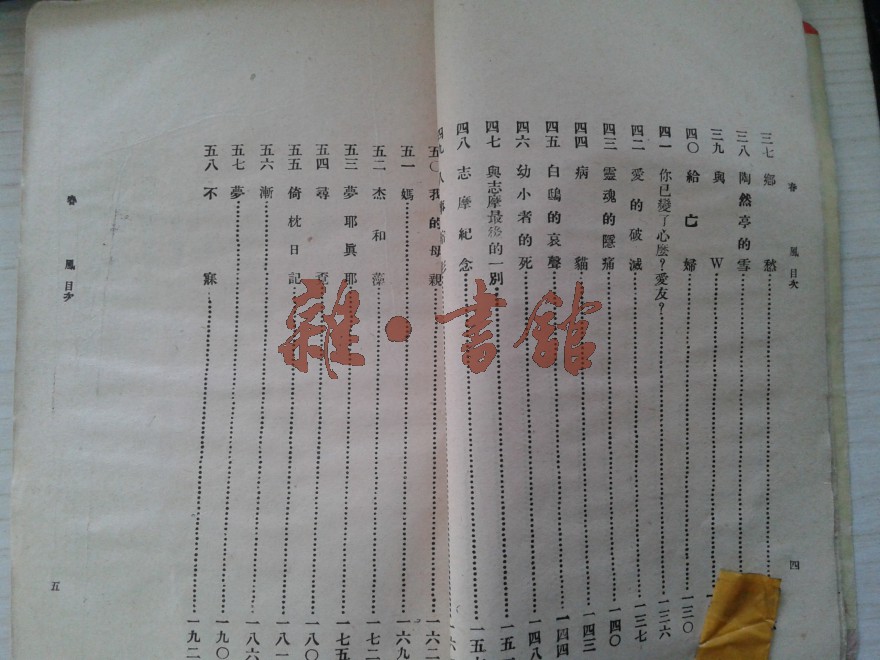 春風目次
三七 鄉愁
三八 陶然亭的雪
三九 與W
四〇 給亡婦 一三〇
四一 你已變了心麽？愛友？ 一三六
四二 愛的破滅 一三七
四三 靈魂的隱痛 一四〇
四四 病貓 一四三
四五 白鴎的哀聲 一四四
四六 幼小者的死 一四八
四七 與志摩最後的一別 一五一
四八 志摩紀念 一五
四九
四
五〇 我的母親 一六二
五一 媽 一六九
五二 杰和藻 一七二
五三 夢耶眞耶 一七五
五四 尋 一八〇
五五 倚枕日記 一八一
五六 漸 一八六
五七 夢 一九〇
五八 不寐 一九二
春風目次
五
雜·書館